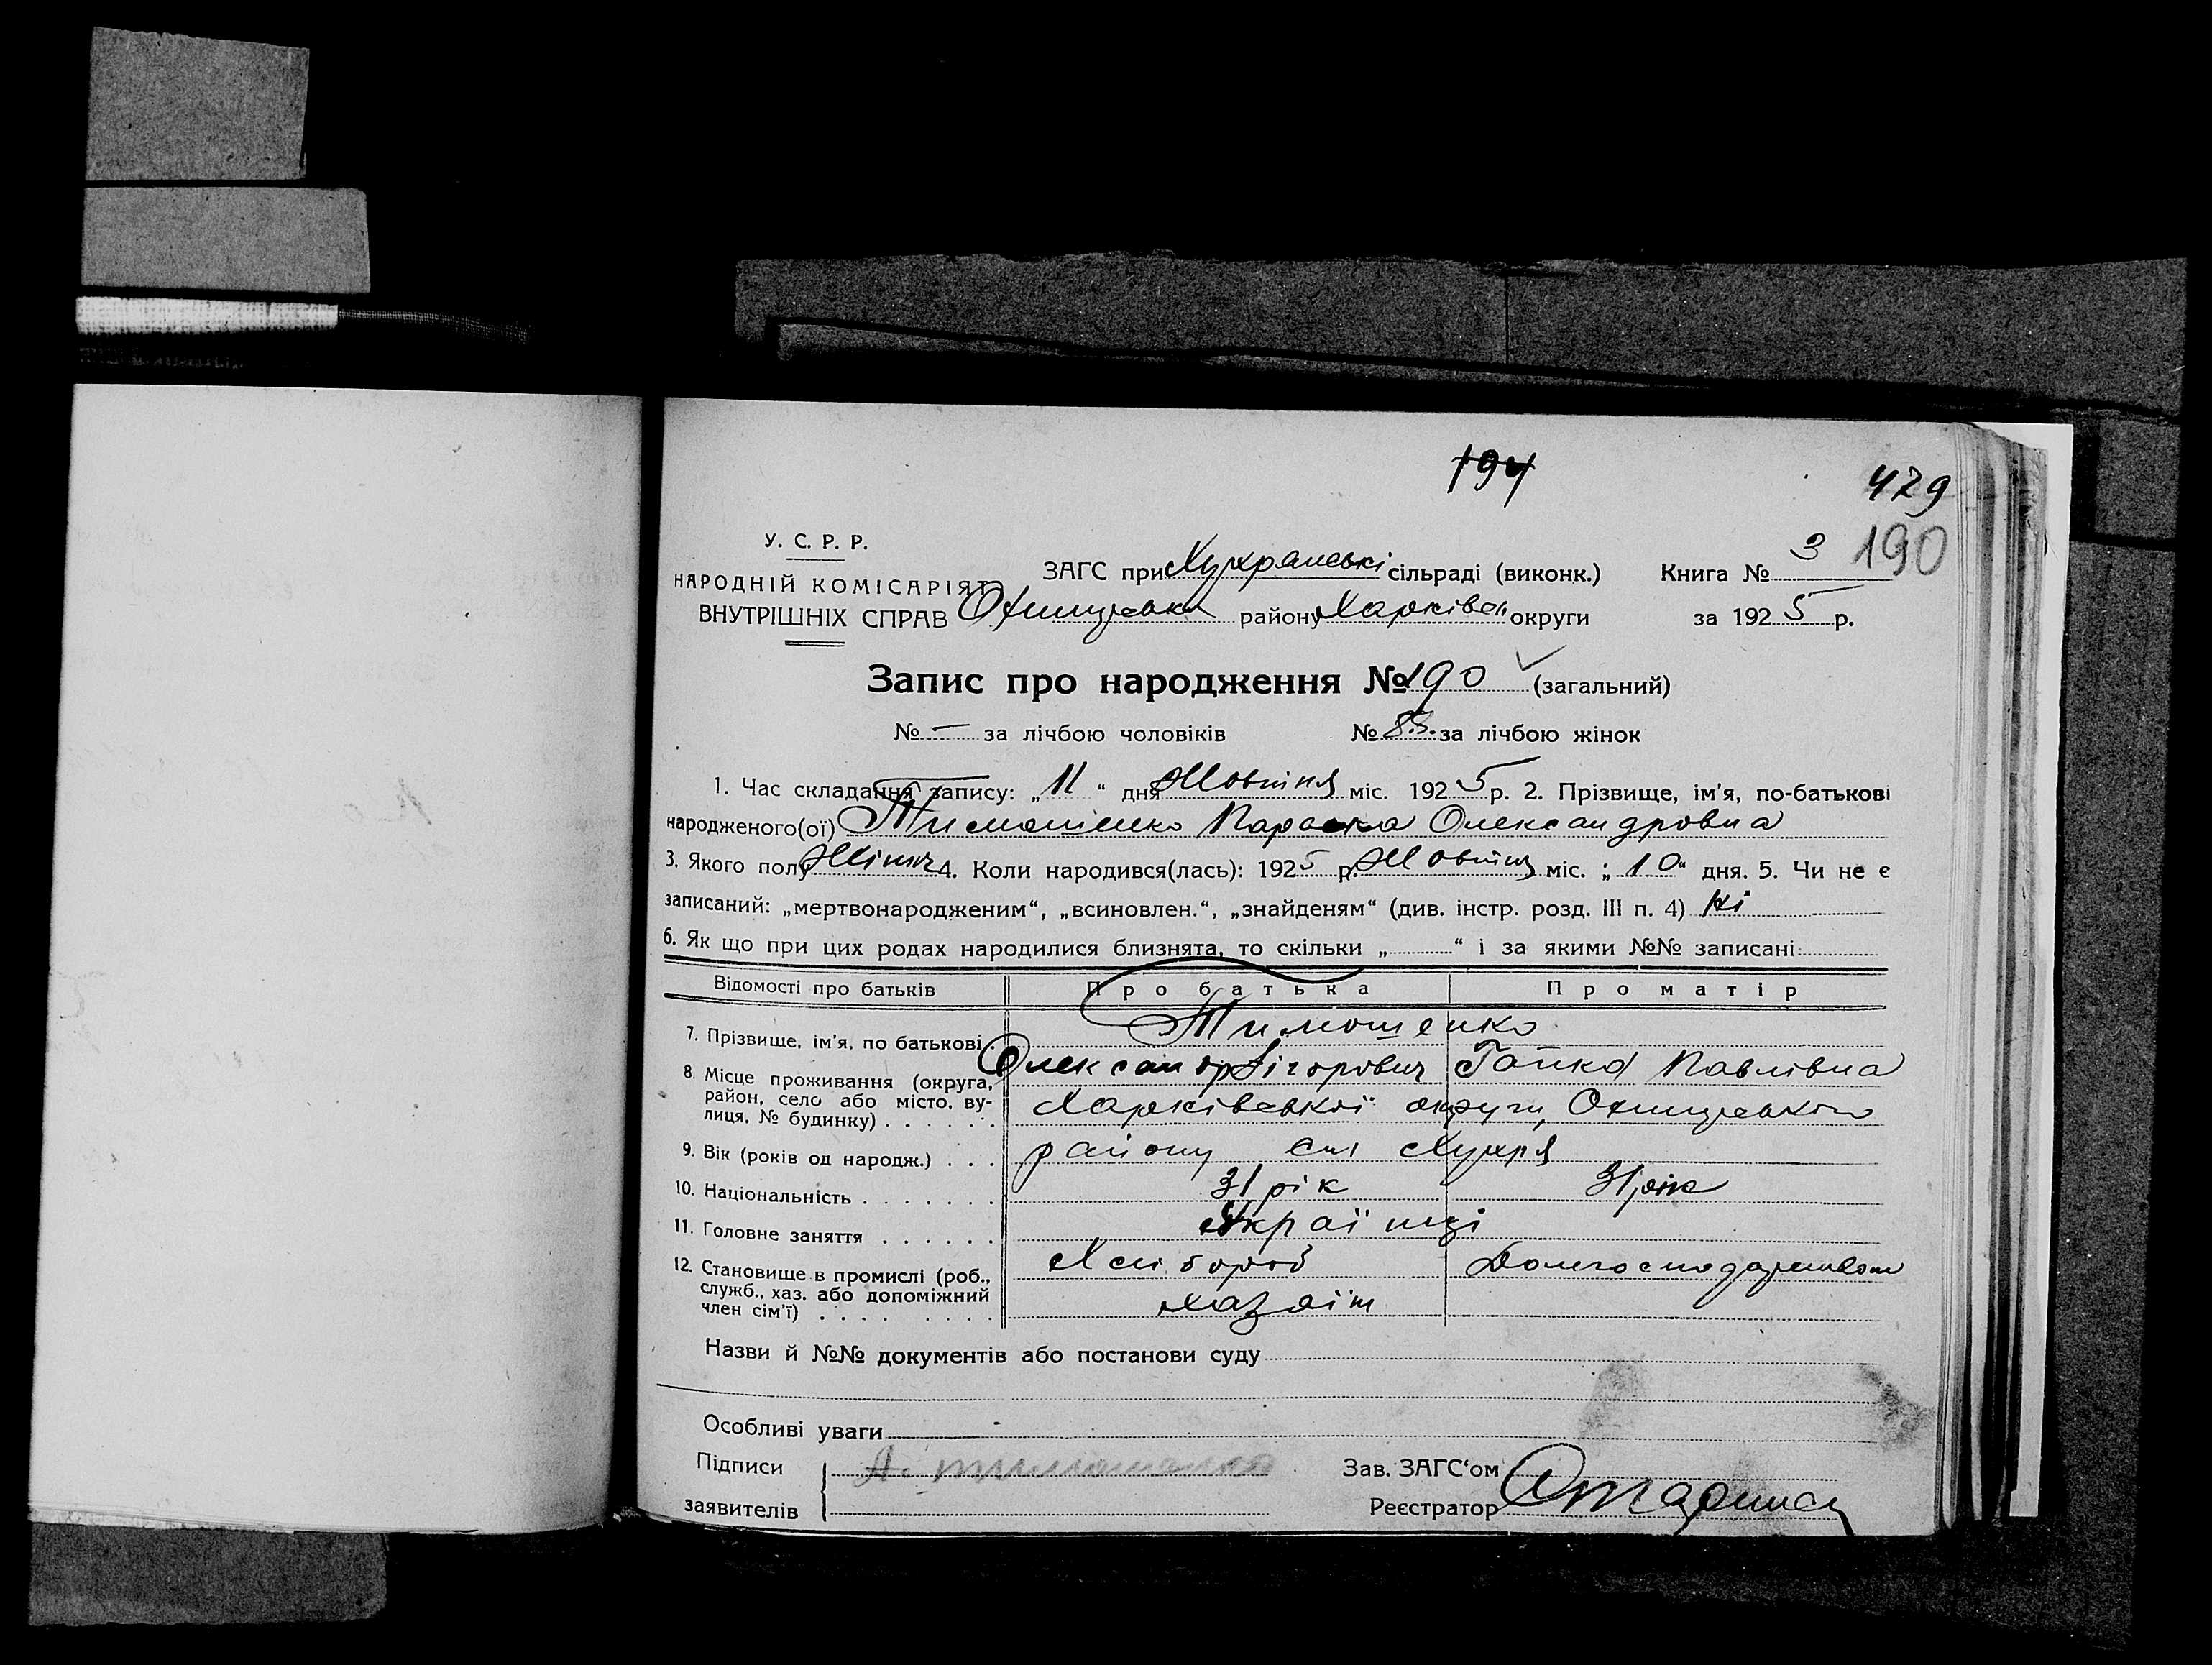 194
429
190
У. С. Р. Р.
НАРОДНІЙ КОМІСАРІЯТ
ВНУТРІШНІХ СПРАВ
ЗАГС при Хухрянські сільраді (виконк.) Книга № 3
Охтирськ району Харківсн округи за 1925 р.
Запис про народження № 190 (загальний)
№ — за лічбою чоловіків № 83. за лічбою жінок
1. Час складання запису: „11“ дня Жовтня міс. 1925 р. 2. Прізвище, ім'я, по-батькові
народженого(ої) Тимошенко Параска Олександровна
3. Якого полу Жіноч 4. Коли народився(лась): 1925 р. Жовтня міс. „10“ дня. 5. Чи не є
записаний: „мертвонародженим“, „всиновлен.“, „знайденям“ (див. інстр. розд. III п. 4) Ні
6. Як що при цих родах народилися близнята, то скільки „ “ і за якими №№ записані:
Відомості про батьків Про батька Про матір
7. Прізвище, ім'я, по батькові. Тимошенко
Олександр Гігорович Гапка Павлівна
8. Місце проживання (округа,
район, село або місто, ву-
лиця, № будинку) . . . . . .
Харківської округи, Охтирського
району сел Хухря
9. Вік (років од народж.) . . . 31 рік 31 рік
10. Національність . . . . . . Українці
11. Головне заняття . . . . . . Хлібороб Домгосподарством
12. Становище в промислі (роб.,
служб., хаз. або допоміжний
член сім'ї) . . . . . . . .
хазяїн
Назви й №№ документів або постанови суду
Особливі уваги -
Підписи А. Тимошенко Зав. ЗАГС‘ом
заявителів Реєстратор